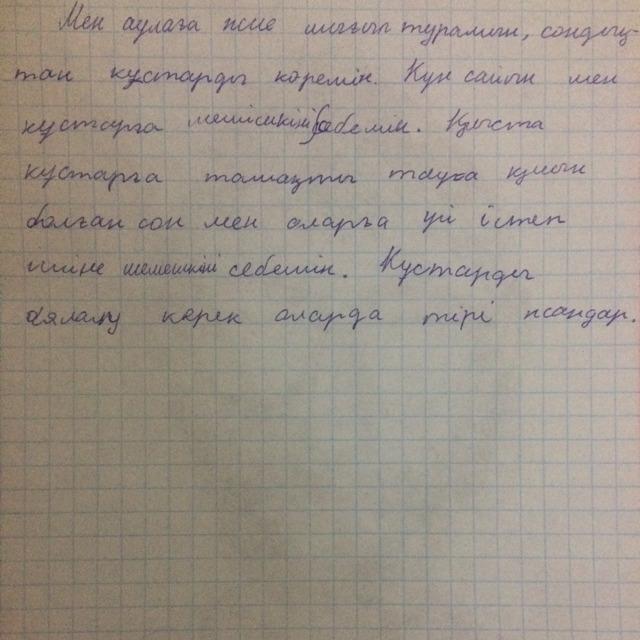 Мен аулаға жие шығып тұрамын, сондық-
тан құстарды көремін. Күн сайын мен
құстарға себемін. Қыста
құстарға тамақты тауға қиын
болған сон мен оларға үй істеп
ішіне шемешкіні себемін. Құстарды
аялау керек оларда тірі жандар.